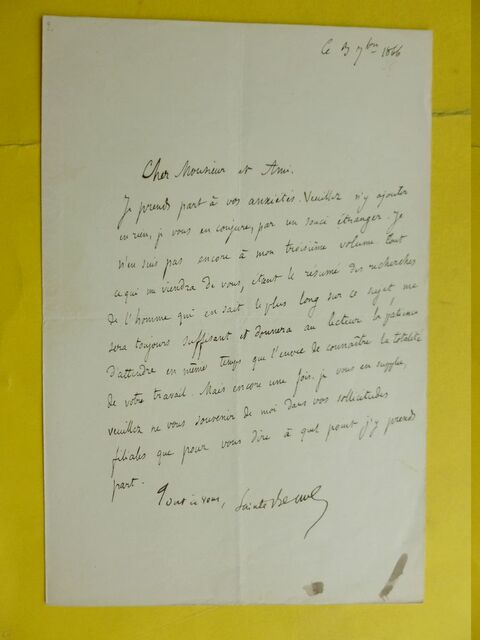 Ce 3 7bre 1866
Cher Monsieur et Ami.
Je prends part à vos anxiétés. Veuillez n'y ajouter
en rien, je vous en conjure, par un souci étranger. Je
n'en suis pas encore à mon troisième volume. tout
ce qui me viendra de vous, étant le resumé des recherches
de l'homme qui en sait le plus long sur ce sujet me
sera toujours suffisant et donnera au lecteur la patience
d'attendre en même temps que l'envie de connaître la totalité
de votre travail. Mais encore une fois, je vous en supplie,
veuillez ne vous souvenir de moi dans vos sollicitudes
filiales que pour vous dire à quel point j'y prends
part.
Tout à vous, Sainte-Beuve